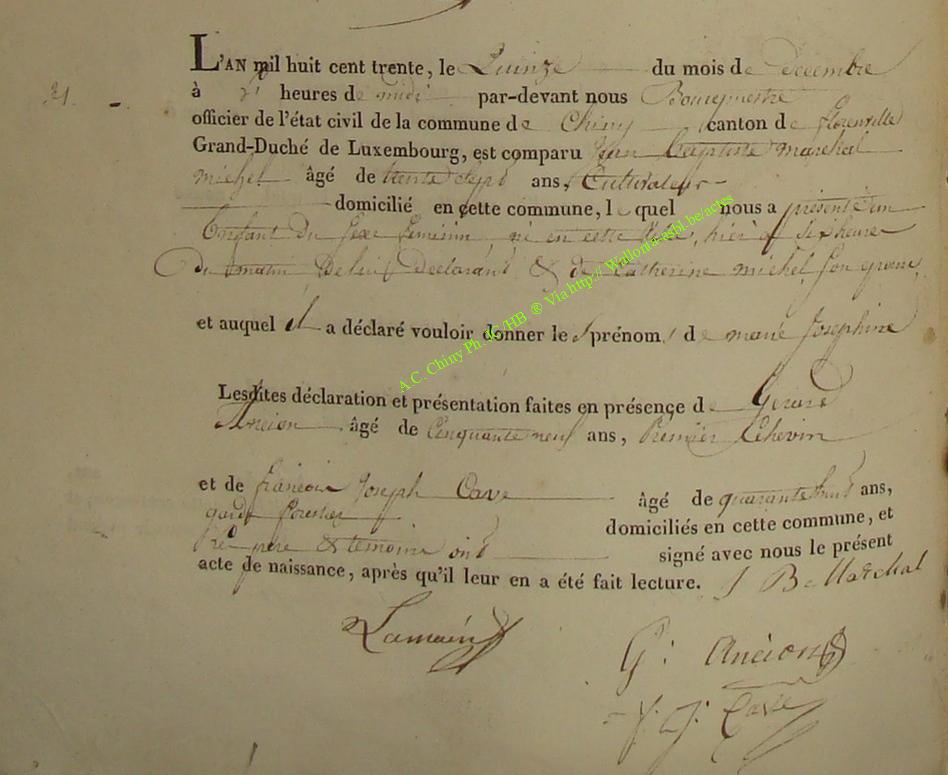 L'AN mil huit cent trente, le Quinze du mois de décembre
à heures de midi par-devant nous Bourgmestre
officier de l'état civil de la commune de Chiny canton de florenville
Grand-Duché de Luxembourg, est comparu Jean Baptiste Marchal
michel âgé de trente sept ans, Cultivateur
domicilié en cette commune, le quel nous a présenté un
Enfant du sexe feminin né en cette hier à heures
du matin De lui declarant & de Catherine michel son epouse,
et auquel il a déclaré vouloir donner les prénoms de marie Josephine
Lesdites déclaration et présentation faites en présence de Gerard
Ancion âgé de Cinquante neuf ans, Premier Echevin
et de francois Joseph Cave âgé de quarante huit ans,
garde forestier domiciliés en cette commune, et
pere & temoins ont signé avec nous le présent
acte de naissance, après qu'il leur en a été fait lecture. J B Marchal
Lamain
G: Ancion
f: J: Cave
A.C. Chiny Ph. JG/HB ® Via http:// Wallonia-asbl.be/actes